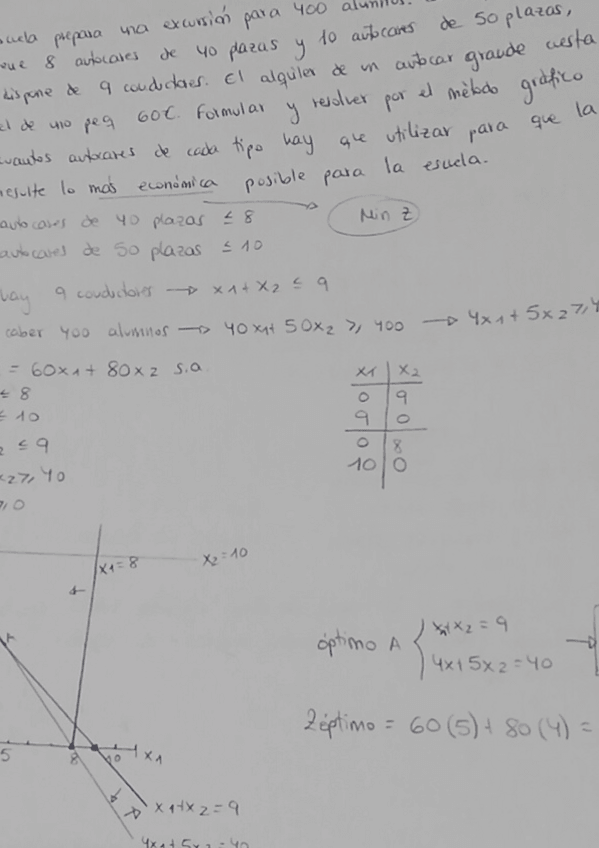 scuela prepara una excursión para 400 alumnos.
que 8 autocares de 40 plazas y 10 autocares de 50 plazas,
dispone de 9 conductores. El alquiler de un autocar grande cuesta
el de uno peq 60€. Formular y resolver por el método gráfico
cuantos autocares de cada tipo hay que utilizar para que la
resulte lo más económica posible para la escuela.
Min Z
autocares de 40 plazas ≤ 8
autocares de 50 plazas ≤ 10
hay 9 conductores → x1+x2 ≤ 9
caber 400 alumnos → 40x1+ 50x2 ≥ 400 → 4x1+5x2≥4
= 60x1+80x2 s.a.
≤ 8
≤ 10
2 ≤ 9
x2≥40
≥0
x1 x2
0 9
9 0
0 8
10 0
x1=8
x2=10
A
5 8 10 x1
x1+x2=9
4x1+5x2=40
óptimo A { x1+x2=9
4x1+5x2=40 →
Zóptimo = 60(5)+80(4) =